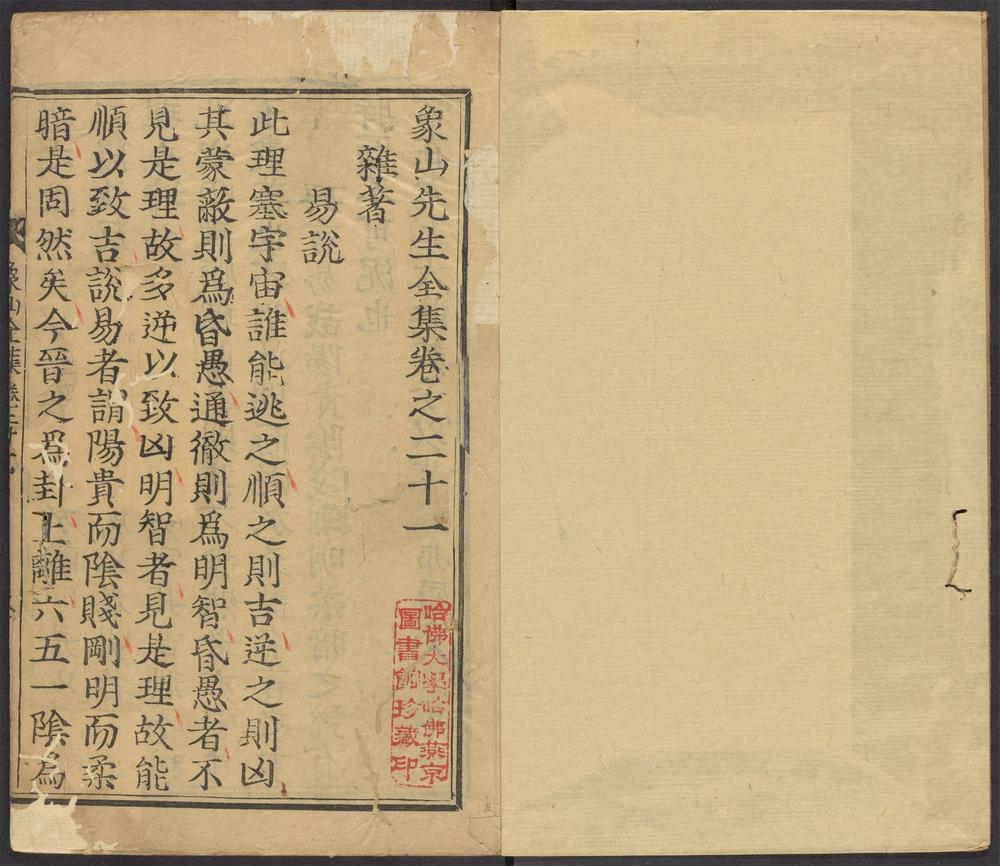 象山先生全集卷之二十一
雜著
易說
此理塞宇宙誰能逃之順之則吉逆之則凶
其蒙蔽則為昏愚通徹則為明智昏愚者不
見是理故多逆以致凶明智者見是理故能
順以致吉說易者謂陽貴而陰賤剛明而柔
暗是固然矣今晉之為卦上離六五一陰為
象山全集卷二十一
哈佛大學哈佛燕京
圖書館珍藏印